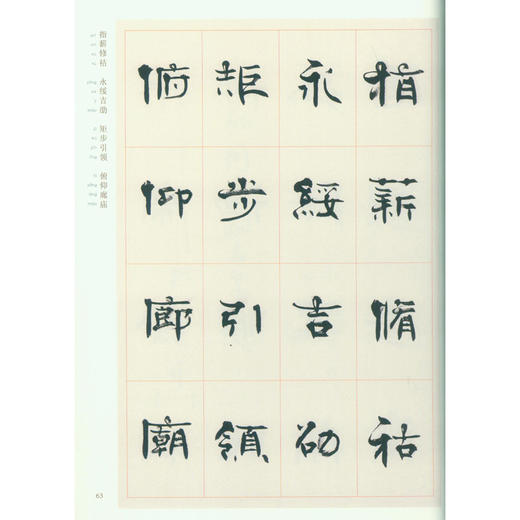 指薪脩祜
永綏吉劭
矩步引領
俯仰廊廟
指薪修祜 永绥吉劭 矩步引领 俯仰廊庙
63